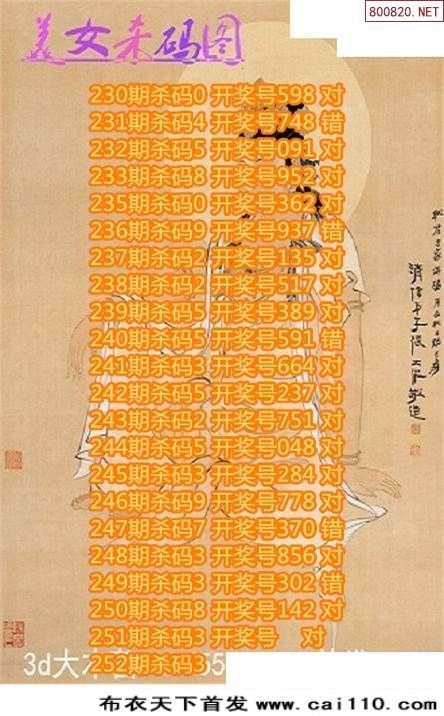 800820.NET
美女杀码图
230期杀码0 开奖号598 对
231期杀码4 开奖号748 错
232期杀码5 开奖号091 对
233期杀码8 开奖号952 对
235期杀码0 开奖号362 对
236期杀码9 开奖号937 错
237期杀码2 开奖号135 对
238期杀码2 开奖号517 对
239期杀码5 开奖号389 对
240期杀码5 开奖号591 错
241期杀码3 开奖号664 对
242期杀码5 开奖号237 对
243期杀码2 开奖号751 对
244期杀码5 开奖号048 对
245期杀码3 开奖号284 对
246期杀码9 开奖号778 对
247期杀码7 开奖号370 错
248期杀码3 开奖号856 对
249期杀码3 开奖号302 错
250期杀码8 开奖号142 对
251期杀码3 开奖号 对
252期杀码3
3d大
布衣天下首发 www.cai110.com